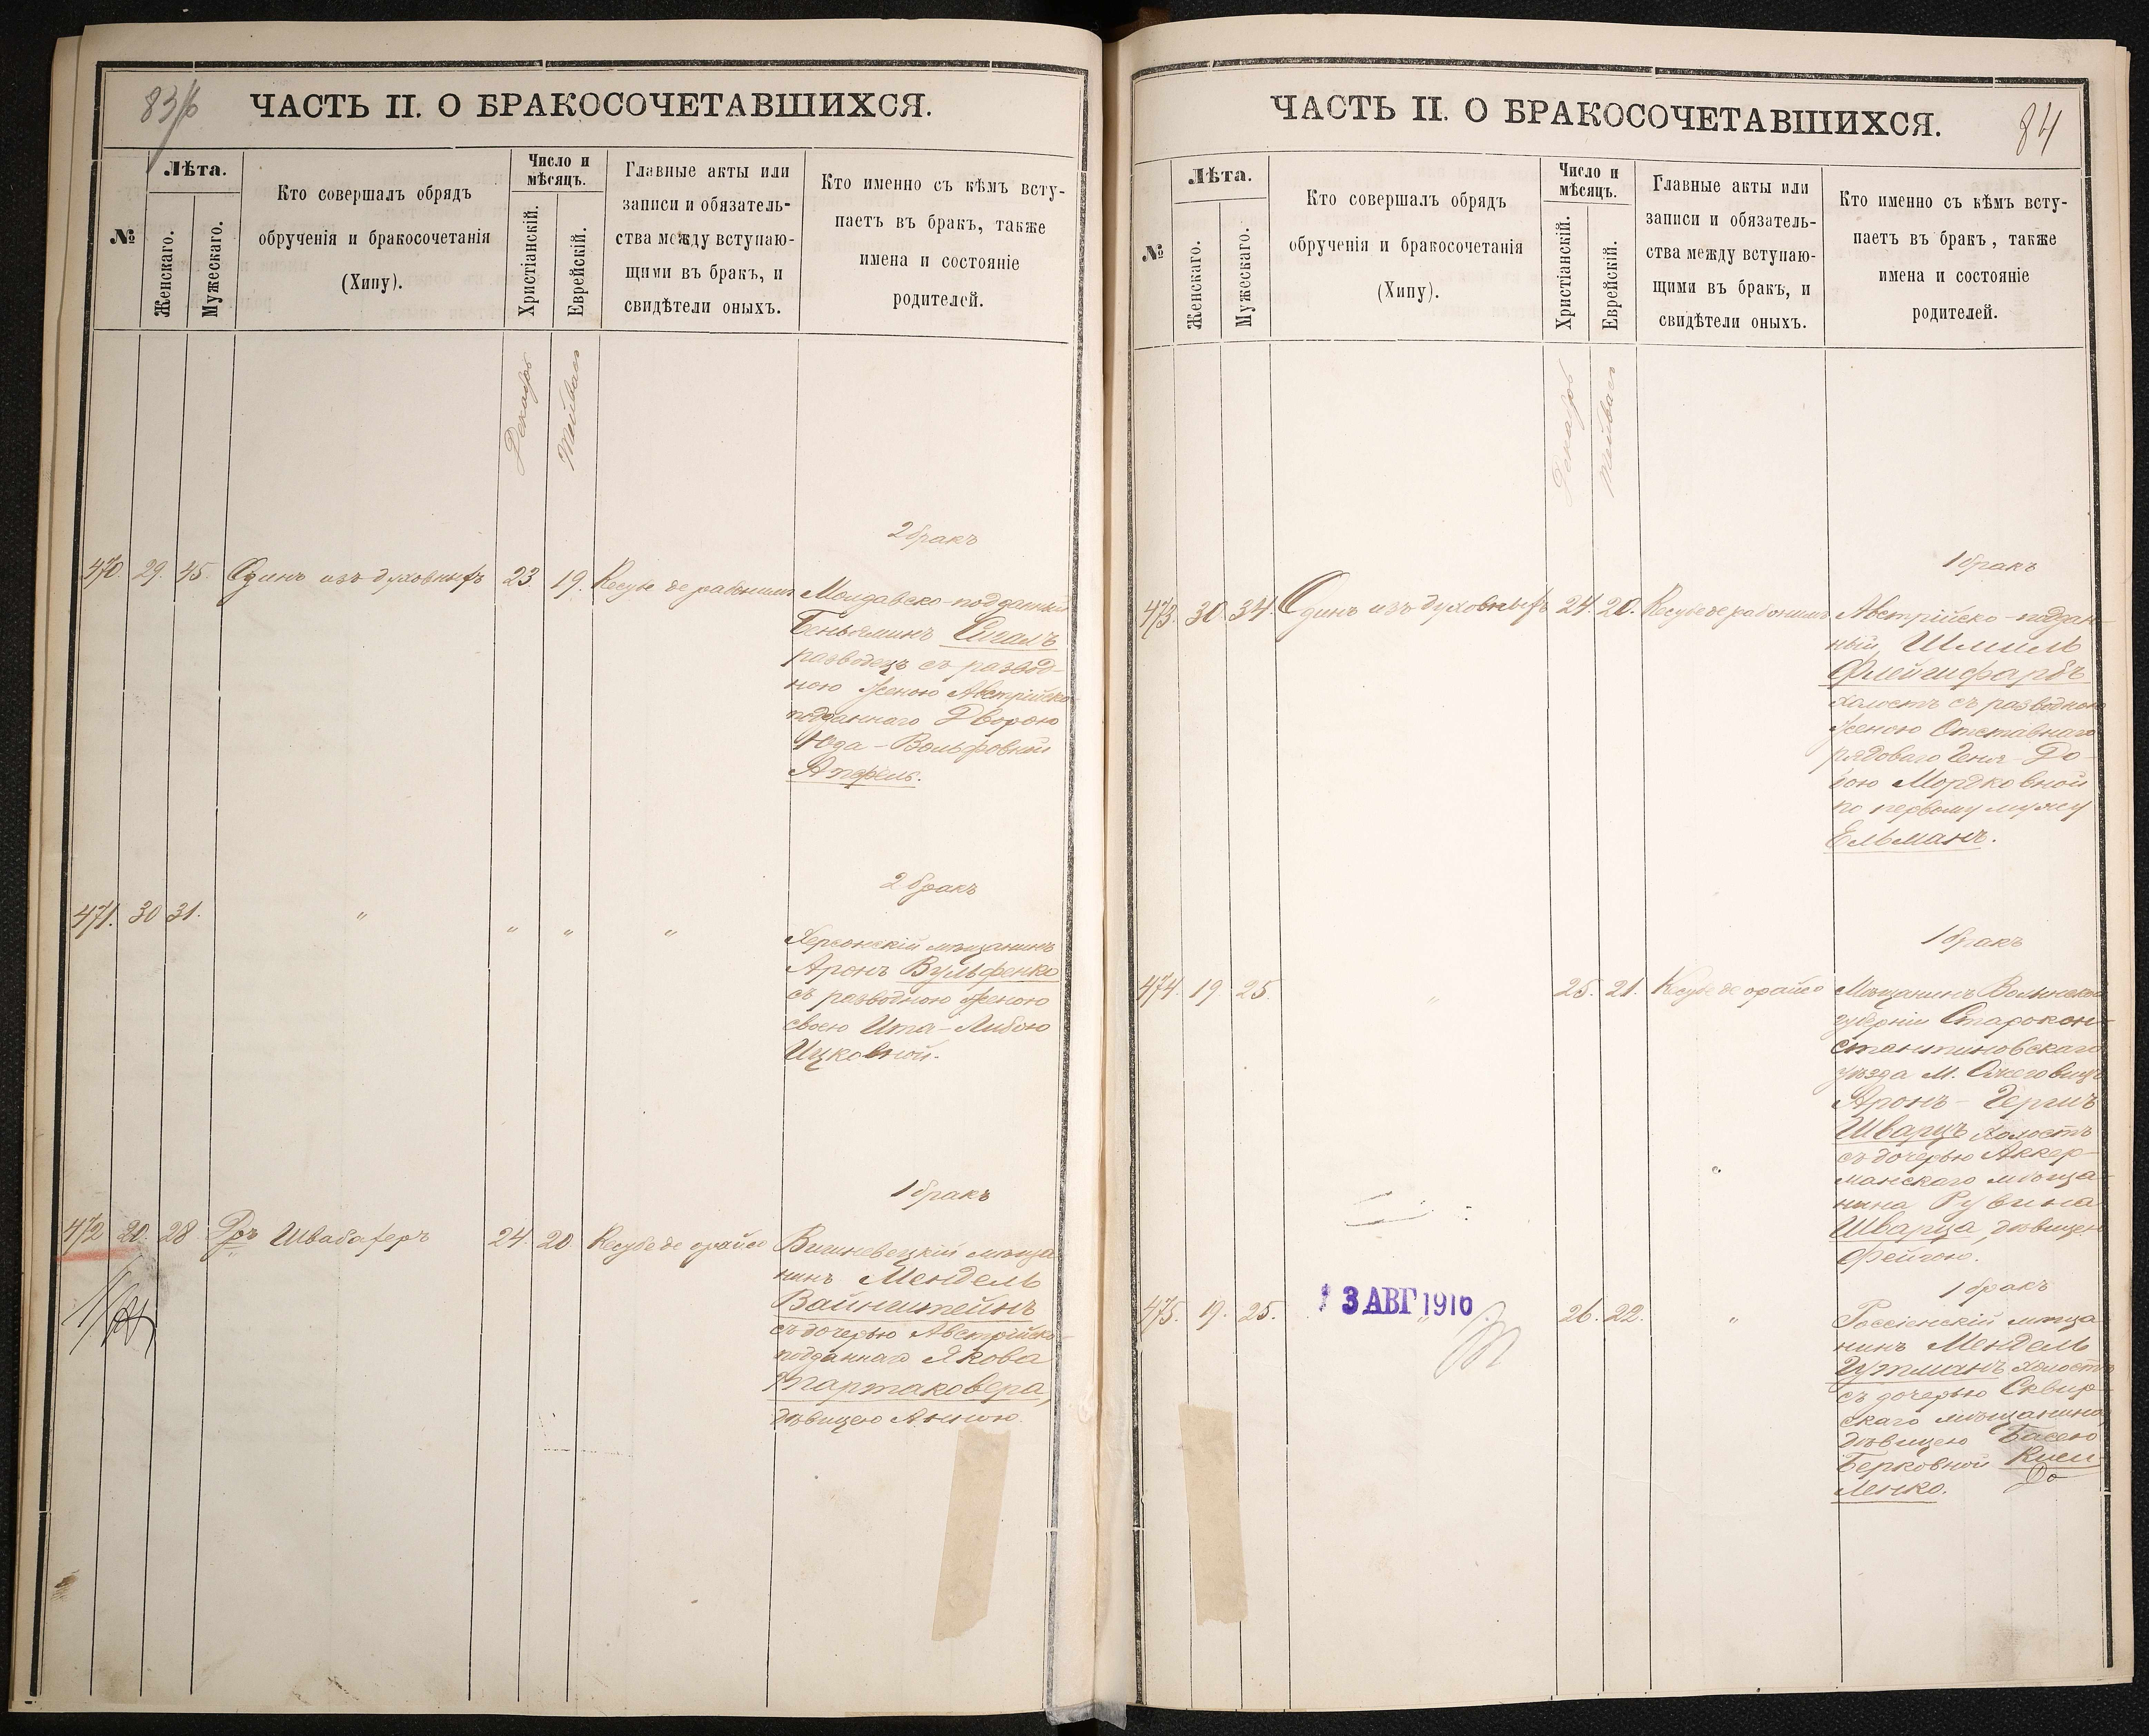 83/б
ЧАСТЬ II. О БРАКОСОЧЕТАВШИХСЯ.
№
Лѣта.
Женскаго.
Мужескаго.
Кто совершалъ обрядъ
обрученія и бракосочетанія
(Хипу).
Число и
мѣсяцъ.
Христіанскій.
Еврейскій.
Главные акты или
записи и обязатель-
ства между вступаю-
щими въ бракъ, и
свидѣтели оныхъ.
Кто именно съ кѣмъ всту-
паетъ въ бракъ, также
имена и состояніе
родителей.
Декабрь
Тейвас
2 бракъ
470. 29. 45. Одинъ изъ духовныхъ 23. 19. Кесубе де рабонимъ Молдавско-подданный
Беньяминъ Сигалъ
разводецъ съ развод-
ною женою Австрійско
подданнаго Дворою
Юда-Вольфовной
Апфель.
2 бракъ
471. 30 31. " " " "
Херсонскій мѣщанинъ
Аронъ Вульфенко
съ разводною женою
своею Ита-Либою
Ицковной.
1 бракъ
472 20. 28 Рръ Швабахеръ 24. 20. Кесубе де орайсо Вишневецкій мѣща
нинъ Мендель
Вайнштейнъ
съ дочерью Австрійско-
подданнаго Якова
Тартаковера,
дѣвицею Анною.
ЧАСТЬ II. О БРАКОСОЧЕТАВШИХСЯ.
84
№
Лѣта.
Женскаго.
Мужескаго.
Кто совершалъ обрядъ
обрученія и бракосочетанія
(Хипу).
Число и
мѣсяцъ.
Христіанскій.
Еврейскій.
Главные акты или
записи и обязатель-
ства между вступаю-
щими въ бракъ, и
свидѣтели оныхъ.
Кто именно съ кѣмъ всту-
паетъ въ бракъ, также
имена и состояніе
родителей.
Декабрь
Тейвас
1 бракъ
473. 30. 34. Одинъ изъ духовныхъ 24. 20. Кесубе де рабонимъ Австрійско-поддан-
ный Шмиль
Флейшфарбъ
холостъ съ разводною
женою Отставнаго
рядоваго Геня-До-
бою Мордковной
по первому мужу
Ельманъ.
1 бракъ
474. 19 25. " 25. 21. Кесубе де орайсо Мѣщанинъ Волынской
губерніи Старокон-
стантиновскаго
уѣзда М. Ожеговицъ
Аронъ-Гершъ
Шварцъ холостъ
съ дочерью Аккер-
манскаго мѣща-
нина Рувина
Шварца, дѣвицею
Фейгою.
1 бракъ
475. 19. 25. " 26. 22. " Россіенскій мѣща
нинъ Мендель
Гутманъ холостъ
съ дочерью Сквир-
скаго мѣщанина
дѣвицею Басею
Берковной Киси-
ленко.
13 АВГ 1910